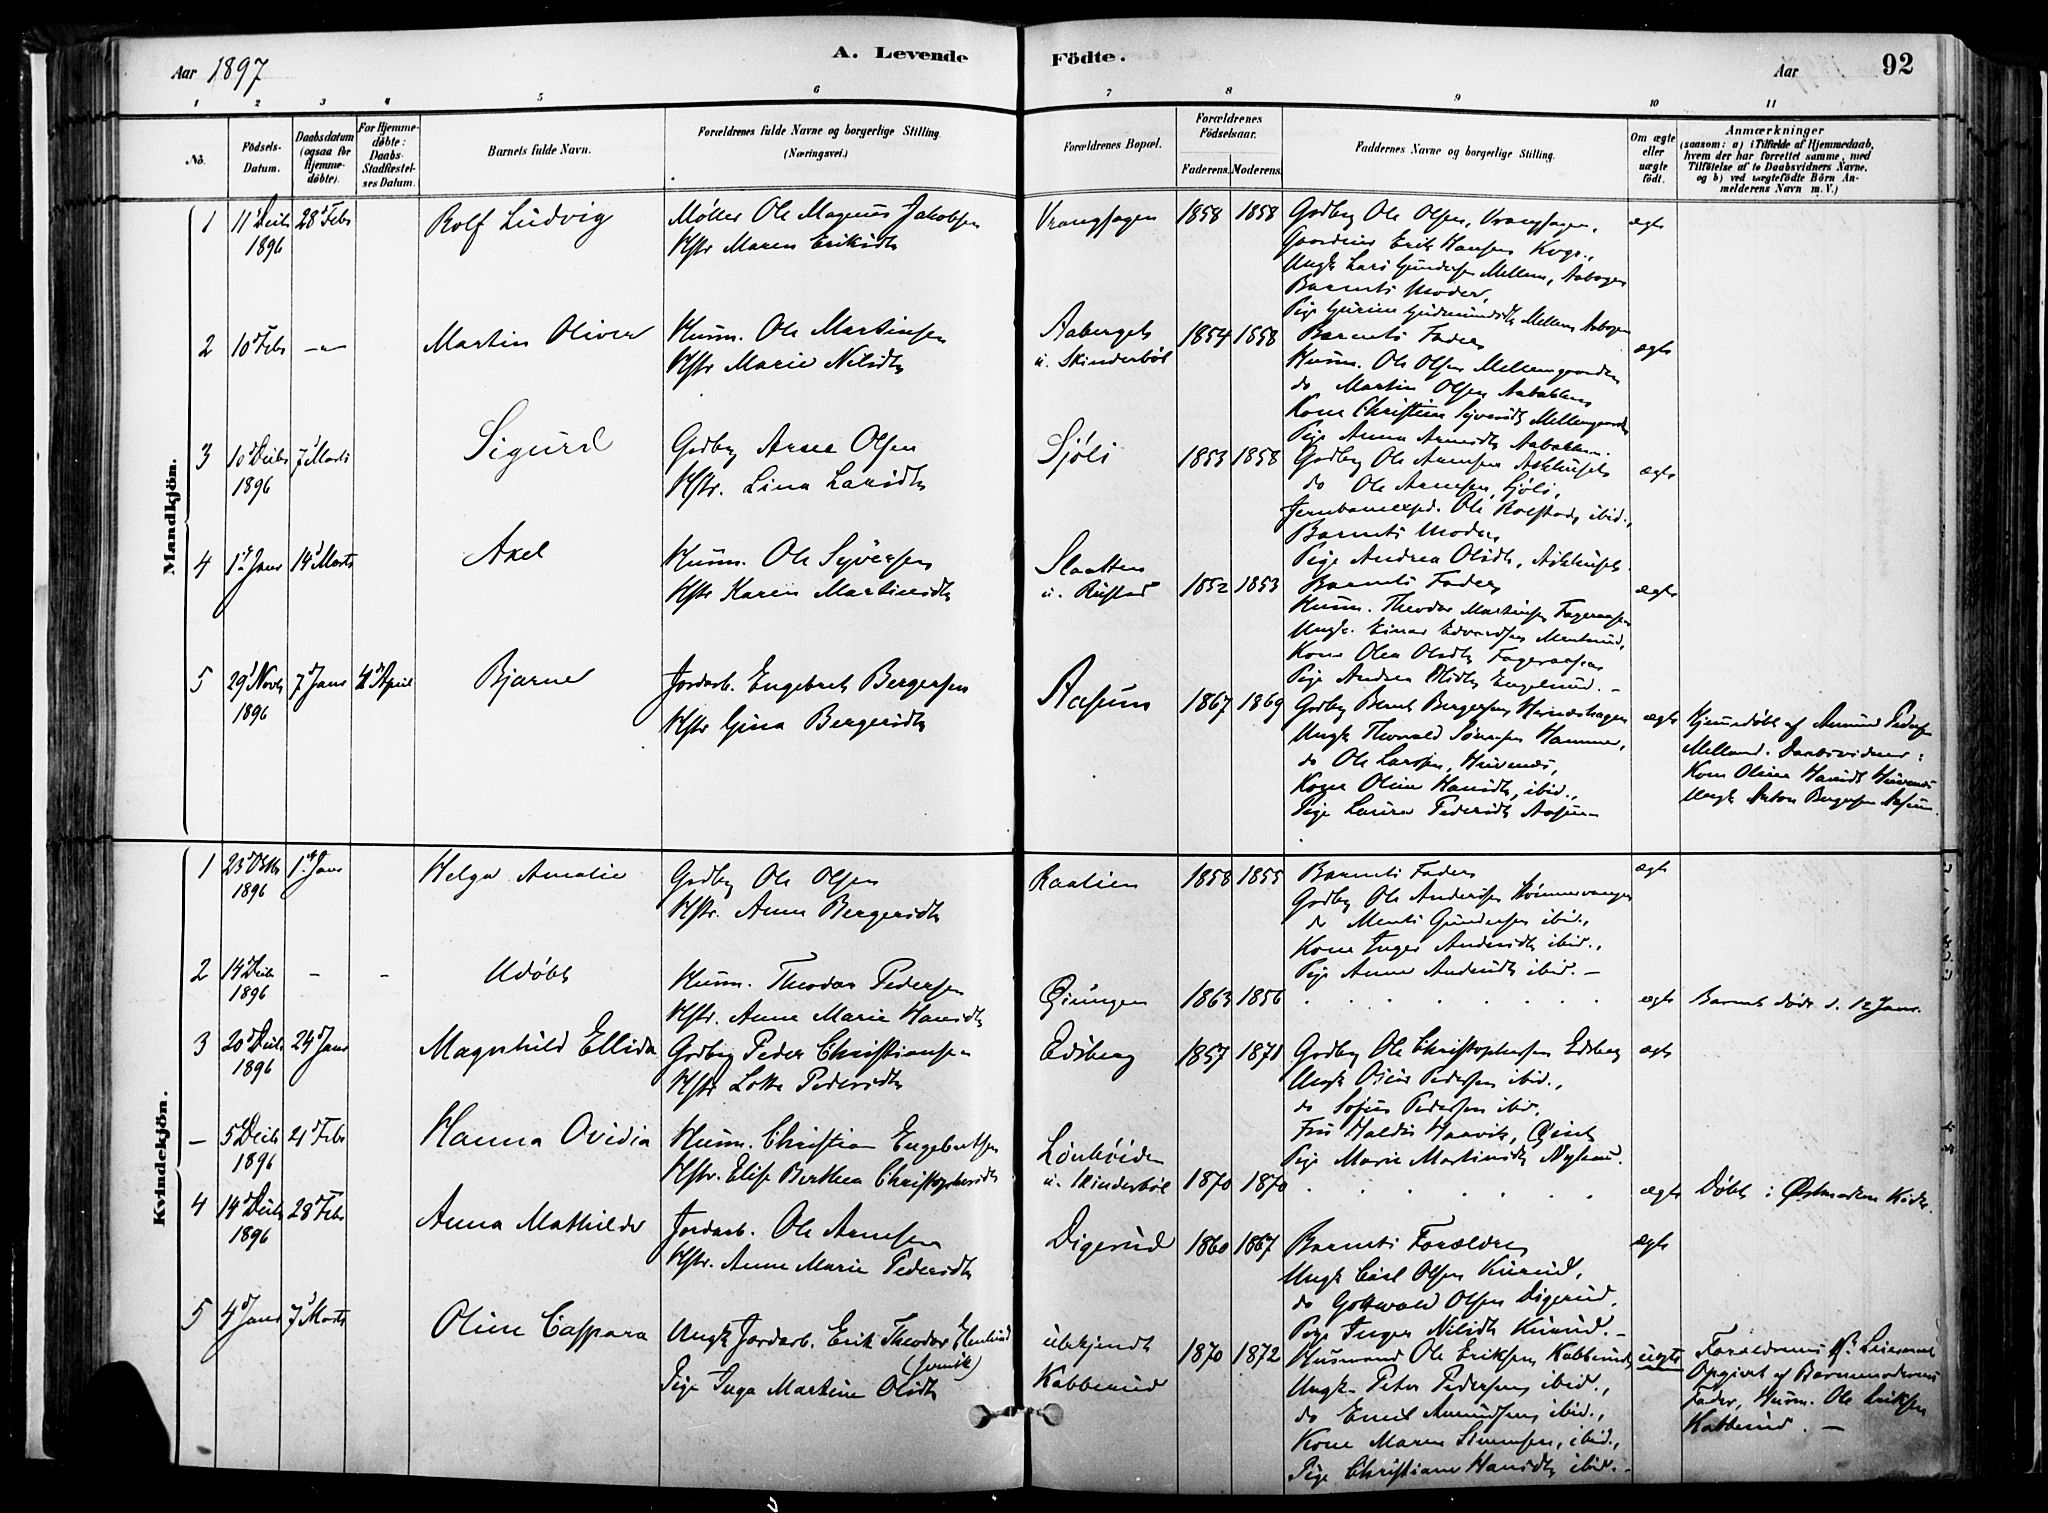 Aar 1897
A. Levende
Födte.
Aar
92
1 2 3 4 5 6 7 8 9 10 11
No.
Födsels-Datum.
Daabsdatum (ogsaa for Hjemme-döbte).
For Hjemme-döbte: Daabs-Stadfæstel-ses Datum.
Barnets fulde Navn.
Forældrenes fulde Navne og borgerlige Stilling. (Næringsvei.)
Forældrenes Bopæl.
Forældrenes Födselsaar.
Faderens. Moderens.
Faddernes Navne og borgerlige Stilling.
Om ægte eller uægte födt.
Anmærkninger
(saasom: a) i Tilfælde af Hjemmedaab,
hvem der har forrettet samme, med
Tilföielse af to Daabsvidners Navne,
og b) ved uægtefödte Börn An-
melderens Navn m. V.)
Mandkjön.
1 11 Decbr 1896 28 Febr Rolf Ludvig
Møller Ole Magnus Jakobsen
Hstr Maren Eriksdtr
Vranghagen 1858 1858
Gbdbr Ole Olsen, Vranghagen,
Gaardeier Erik Hansen Kvgr.,
Ungk Lars Gundersen Mellem, Aabogen
Barnets Moder,
Pige Gurine Gudmundsdtr Mellem Aabogen
ægte
2 10 Febr -"- Martin Oliver
Husm. Ole Martinsen
Hstr Marie Nilsdtr
Aaberget u. Skinderböl 1854 1858
Barnets Fader
Husm. Ole Olsen Mellemgaarden
do Martin Olsen Aabakken
Kone Christine Syversdtr Mellemgaarden
Pige Anna Arnesdtr Aabakken.
ægte
3 10 Decbr 1896 7 Marts Sigurd
Gbdbr Arne Olsen
Hstr. Lina Larsdtr
Sjöli 1853 1858
Gbdbr Ole Arnesen Askhuset
do Ole Arnesen, Sjöli,
Jernbaneexped. Ole Rolstad, ibid.,
Barnets Moder
Pige Andrea Olsdtr, Askhuset.
ægte
4 1 Janr 14 Marts Axel
Husm. Ole Syversen
Hstr Karen Martinsdtr
Slaatten u. Rustad 1852 1853
Barnets Fader
Husm. Theodor Martinsen Fageraasen
Ungk. Einar Edvardsen
Kone Olea Olsdtr Fageraasen
Pige Andrea Olsdtr Engelrud. -
ægte
5 29 Novbr 1896 7 Janr 4 April Bjarne
Jordarb. Engebret Bergersen
Hstr Gina Bergersdtr
Aasum 1867 1869
Gbdbr Bernt Bergersen
Ungk Thorvald Sörensen Hammer,
do Ole Larsen, Huvenæs,
Kone Oline Hansdtr, ibid.,
Pige Laura Pedersdtr Aasum
ægte
Hjemmedöbt af Amund Pedersen
Melland. Daabsvidner:
Kone Oline Hansdtr Huvenæs
Ungk Anton Bergersen Aasum
Kvindekjön.
1 23 Oktbr 1896 1 Janr Helga Amalie
Gbdbr Ole Olsen
Hstr. Anne Bergersdtr
Raalien 1858 1855
Barnets Fader
Gbdbr Ole Andersen
do Ments Gundersen ibid.,
Kone Inger Andersdtr ibid.,
Pige Anne Andersdtr ibid. -
ægte
2 14 Decbr 1896 - - Udöbt
Husm. Theodor Pedersen
Hstr. Anne Marie Hansdtr
Öiungen 1863 1856
ægte
Barnet döde d. 12 Janr.
3 20 Decbr 1896 24 Janr Magnhild Ellida
Gbdbr Peder Christiansen
Hstr Lotte Pedersdtr
Edsberg 1857 1871
Gbdbr Ole Christophersen Edsberg
Ungk Pedersen ibid.,
do Sofus Pedersen ibid.
Fru Haldis Haavik, Eidet
Pige Marie Martinsdtr
ægte
- 5 Decbr 1896 21 Febr Hanna Ovidia
Husm. Christian Engebretsen
Hstr. Elise Berthea Christophersdtr
Lönhöiden u. Skinderböl 1870 1870
ægte
Döbt i Östmarken Kirke.
4 14 Decbr 1896 28 Febr Anna Mathilde
Jordarb. Ole Arnesen
Hstr. Anne Marie Pedersdtr
Digerud 1860 1867
Barnets Forældre
Ungk Carl Olsen Kurud,
do Gottwald Olsen Digerud,
Pige Inger Nilsdtr Kurud. -
ægte
5 4 Janr 7 Marts Oline Caspara
Ungk Jordarb. Erik Theodor
(svensk)
Pige Inga Martine Olsdtr
ubekjendt
Kabberud
1870 1872
Husmand Ole Eriksen Kabberud
Ungk. Peter Pedersen ibid.,
do Emil Amundsen ibid.,
Kone Maren Simensen, ibid.,
Pige Christiane Hansdtr ibid. -
uægte
Forældrenes 1ste Leiermaal
Opgivet af Barnemoderens
Fader, Husm. Ole Eriksen
Kabberud. -